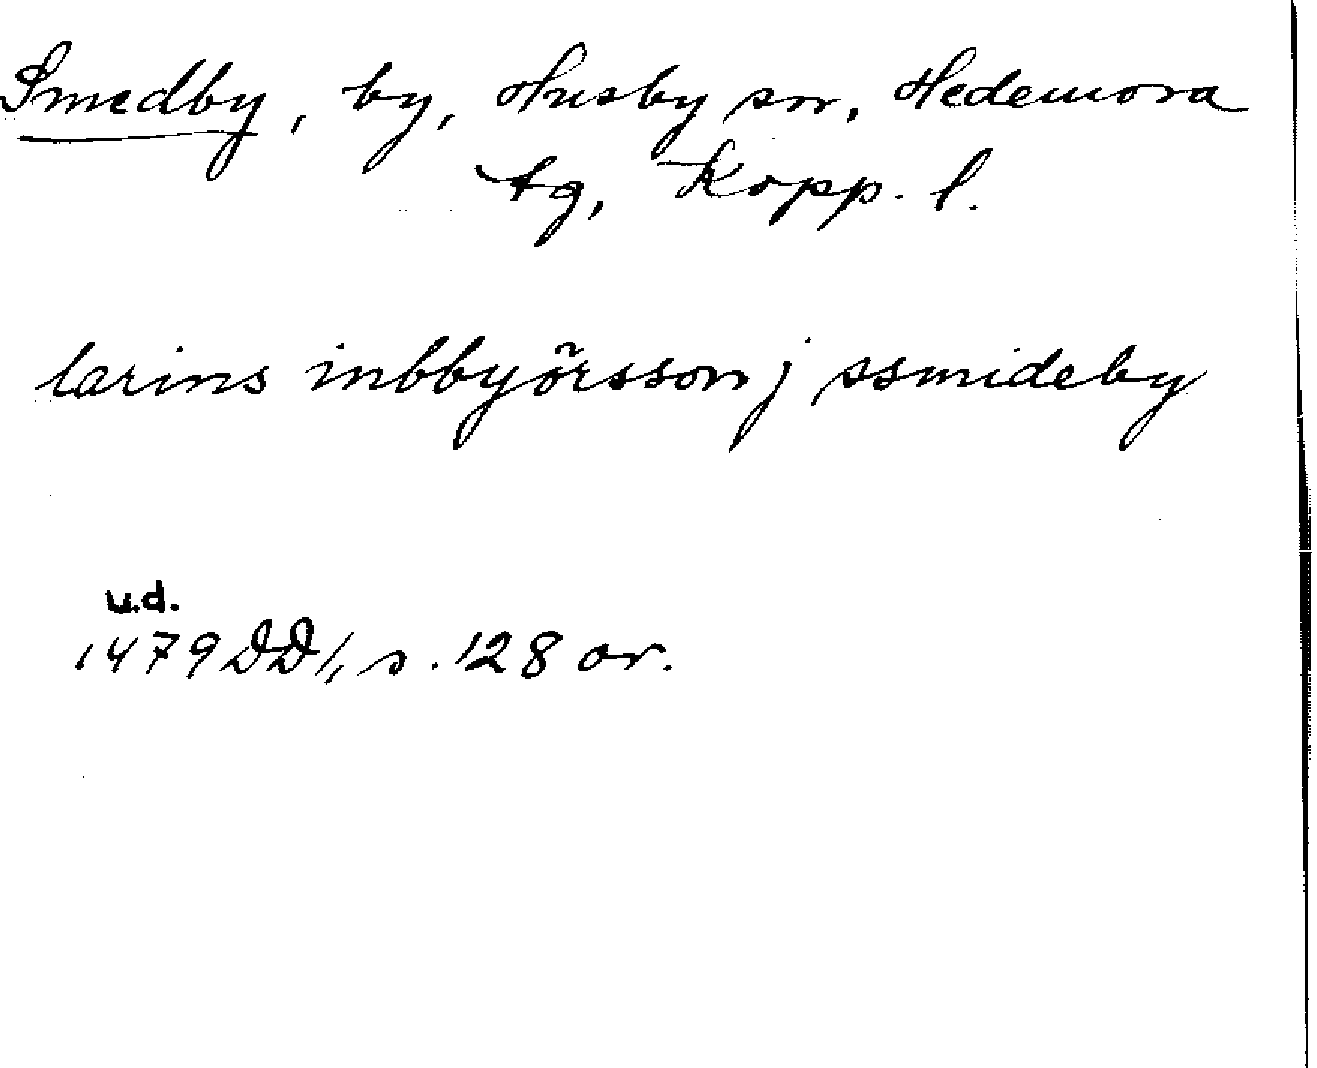 Smedby, by, Husby sn, Hedemora
tg, Kopp. l.
larins inbbyõrsson j ssmideby
u.d.
1479 DD 1, s. 128 or.